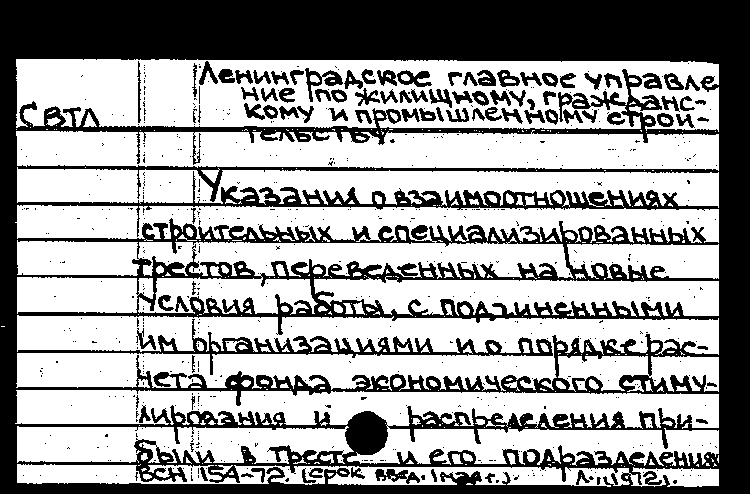 Ленинградское главное управле
ние по жилищному, гражданс-
СВТЛ
кому и промышленному строи-
тельству.
Указания о взаимоотношениях
строительных и специализированных
трестов, переведенных на новые
условия работы, с подчиненными
им организациями и о порядке рас-
чета фонда экономического стиму-
лирования и распределения при-
были в тресте и его подразделениях
ВСН 154-72. (срок введ. 1 мая г.). Л., 1972).